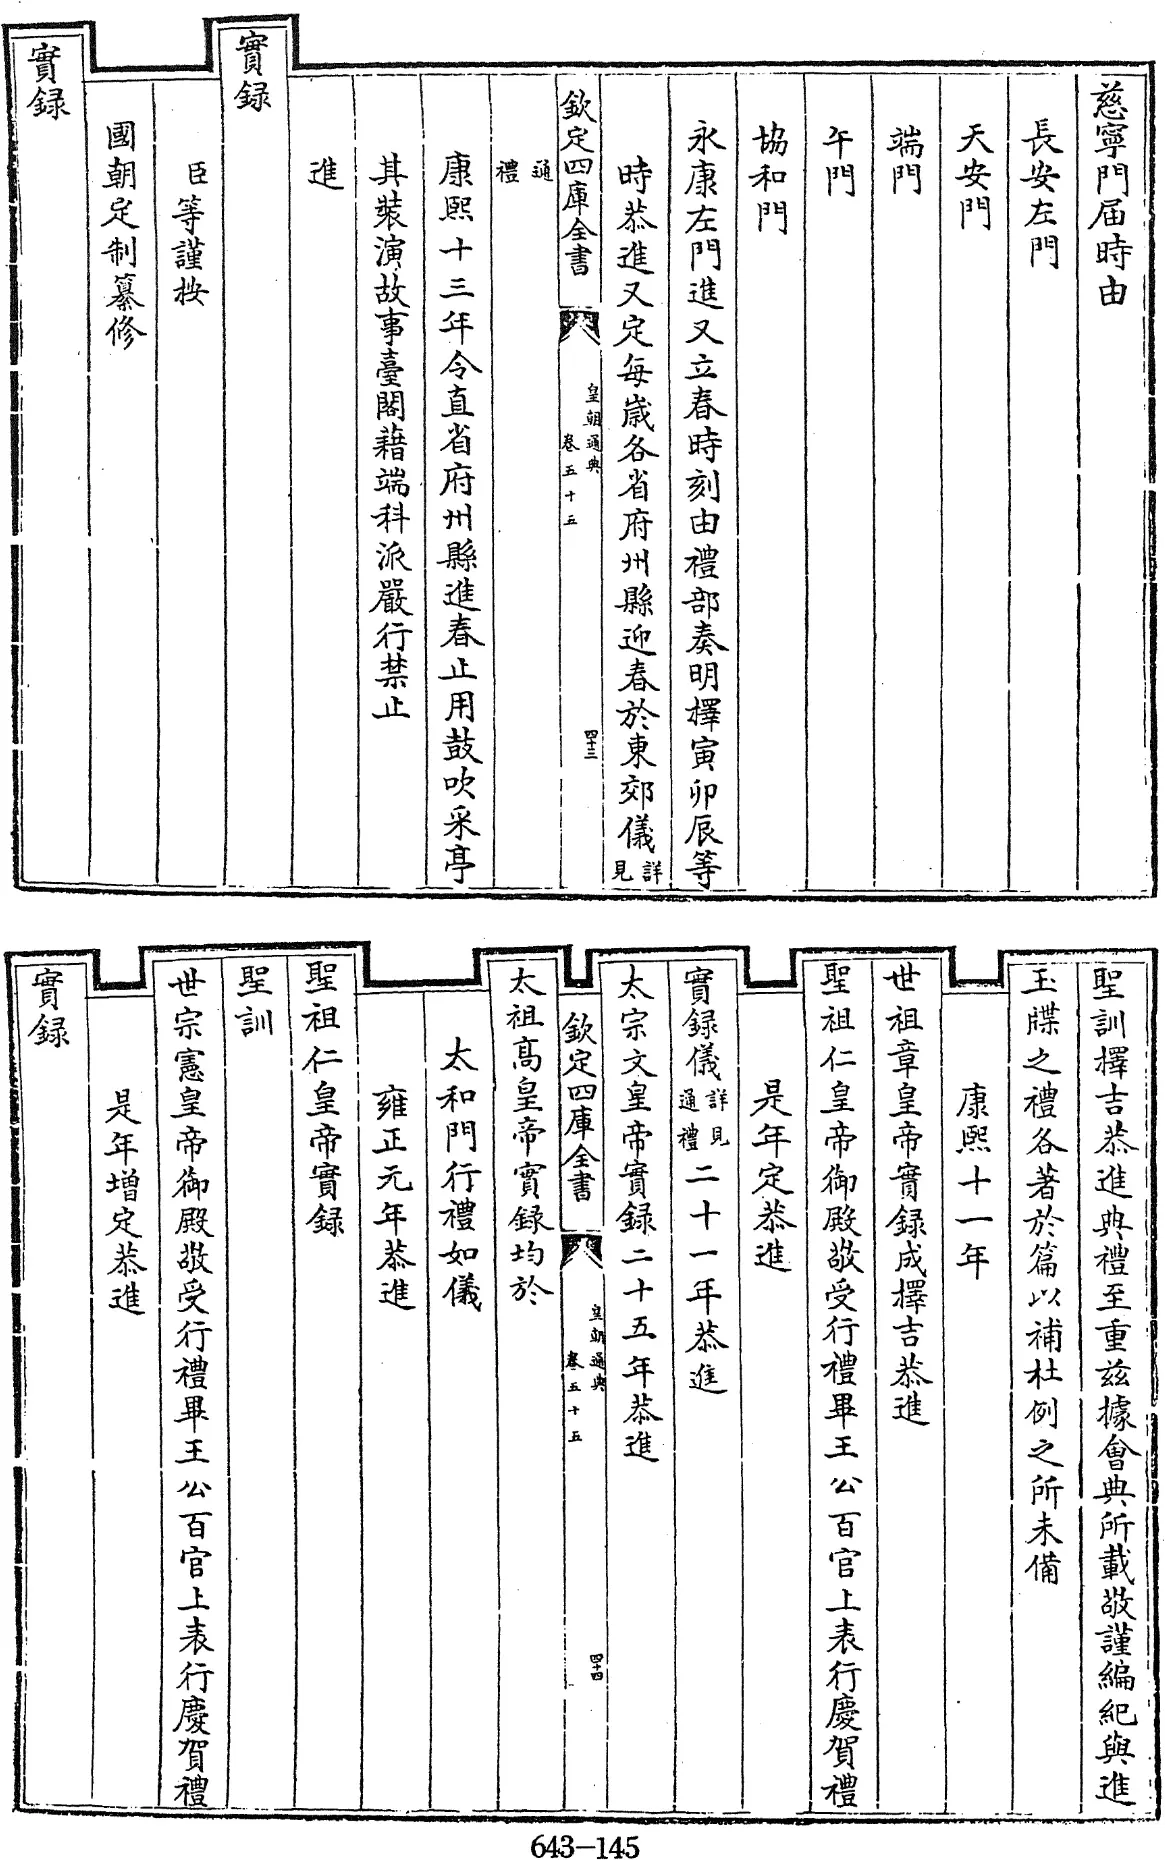 慈寧門届時由
長安左門
天安門
端門
午門
協和門
永康左門進又立春時刻由禮部奏明擇寅卯辰等
時恭進又定每歲各省府州縣迎春於東郊儀詳見
欽定四庫全書
皇朝通典
卷五十五
四十三
通禮
康熙十三年令直省府州縣進春止用鼓吹采亭
其裝演故事臺閣藉端科派嚴行禁止
進
實録
臣等謹按
國朝定制纂修
實録
聖訓擇吉恭進典禮至重兹據會典所載敬謹編紀與進
玉牒之禮各著於篇以補杜例之所未備
康熙十一年
世祖章皇帝實録成擇吉恭進
聖祖仁皇帝御殿敬受行禮畢王公百官上表行慶賀禮
是年定恭進
實録儀詳見通禮二十一年恭進
太宗文皇帝實録二十五年恭進
欽定四庫全書
皇朝通典
卷五十五
四十四
太祖高皇帝實録均於
太和門行禮如儀
雍正元年恭進
聖祖仁皇帝實録
聖訓
世宗憲皇帝御殿敬受行禮畢王公百官上表行慶賀禮
是年增定恭進
實録
643-145